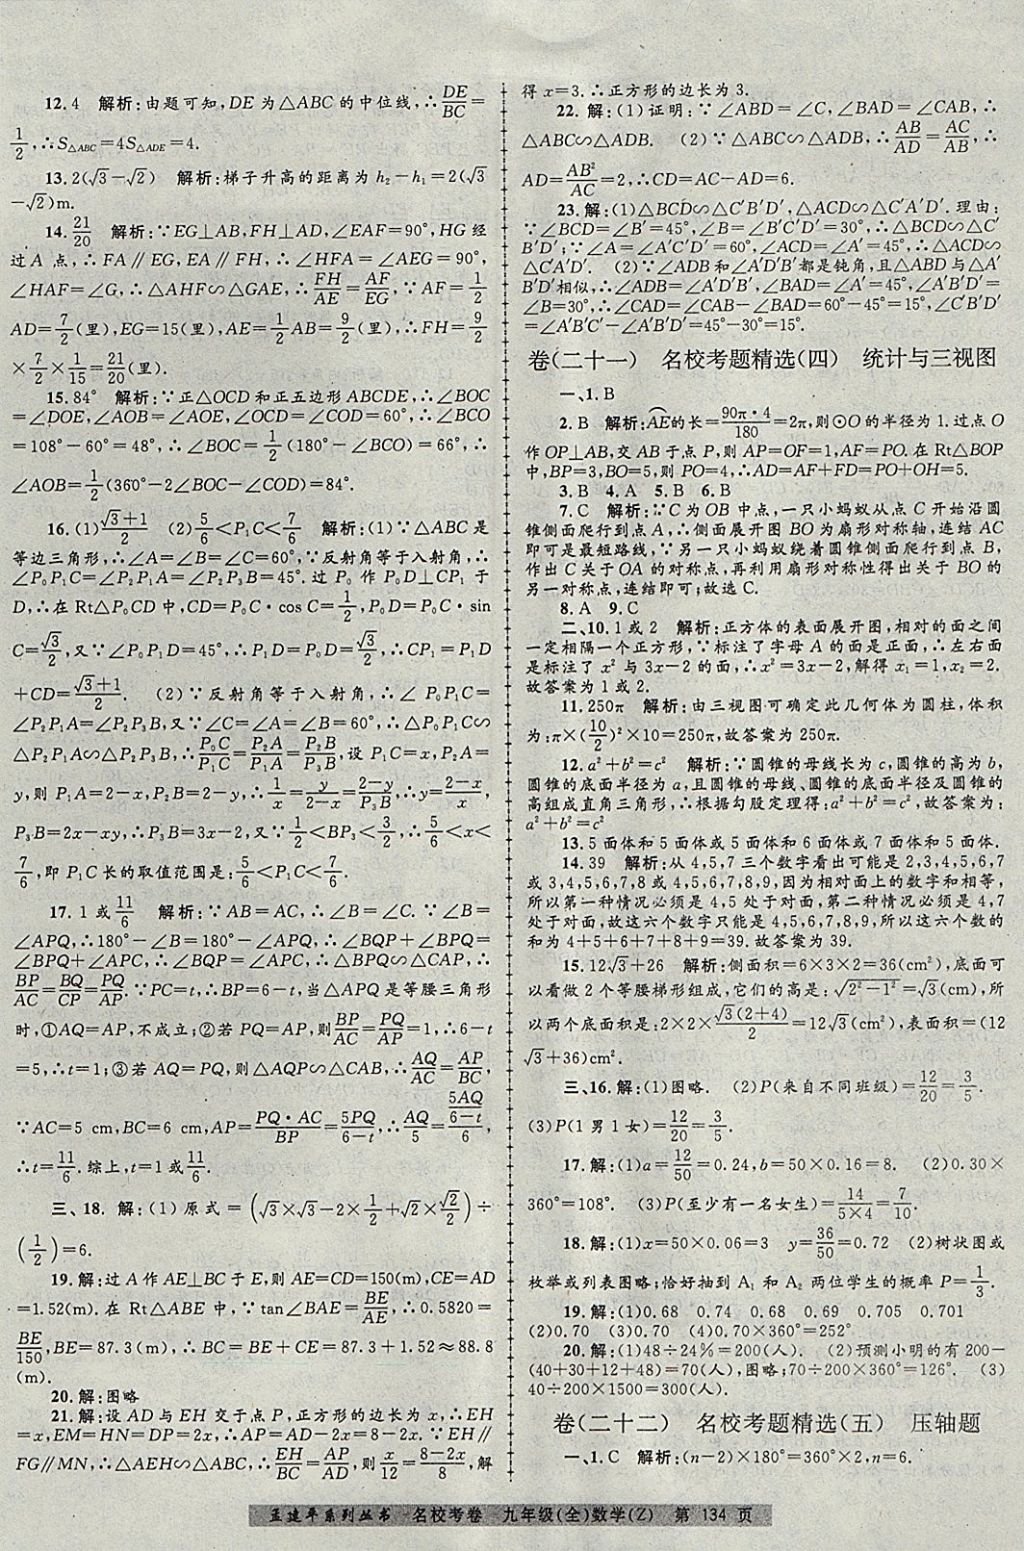 12.4　解析:由题可知,DE为△ABC的中位线,∴DE/BC=
1/2,∴S△ABC=4S△ADE=4.
13.2(√3-√2)　解析:梯子升高的距离为h₂-h₁=2(√3
-√2)m.
14.21/20　解析:∵EG⊥AB,FH⊥AD,∠EAF=90°,HG经
过A点,∴FA∥EG,EA∥FH,∴∠HFA=∠AEG=90°,
∠HAF=∠G,∴△AHF∽△GAE,∴FH/AE=AF/EG,∵AF=1/2
AD=7/2(里),EG=15(里),AE=1/2AB=9/2(里),∴FH=9/2
×7/2×1/15=21/20(里).
15.84°　解析:∵正△OCD和正五边形ABCDE,∴∠BOC
=∠DOE,∠AOB=∠AOE,∠OCD=∠COD=60°,∴∠BCO
=108°-60°=48°,∴∠BOC=1/2(180°-∠BCO)=66°,∴
∠AOB=1/2(360°-2∠BOC)=84°.
16.(1)(√3+1)/2　(2)5/6<P₁C<7/6　解析:(1)∵△ABC是
等边三角形,∴∠A=∠B=∠C=60°,∵反射角等于入射角,∴
∠P₀P₁C=∠P₂P₁A=∠P₂P₃B=45°.过P₀作P₀D⊥CP₁于
D,∴在Rt△P₀CD中,CD=P₀C·cosC=1/2,P₀D=P₀C·sin
C=√3/2,又∵∠P₀P₁D=45°,∴P₁D=P₀D=√3/2,∴CP₁=P₁D
+CD=(√3+1)/2.　(2)∵反射角等于入射角,∴∠P₀P₁C=
∠P₂P₁A=∠P₂P₃B,又∵∠C=∠A=∠B=60°,∴△P₀P₁C∽
△P₂P₁A∽△P₂P₃B,∴P₀C/P₁C=P₂A/P₁A=P₂B/P₃B,设P₁C=x,P₂A=
y,则P₁A=2-x,P₂B=2-y,∴1/x=y/(2-x)=(2-y)/P₃B,∴y=(2-x)/x,
P₃B=2x-xy,∴P₃B=3x-2,又∵1/2<BP₃<3/2,∴5/6<x<
7/6,即P₁C长的取值范围是:5/6<P₁C<7/6.
17.1或11/6　解析:∵AB=AC,∴∠B=∠C.∵∠B=
∠APQ,∴180°-∠B=180°-∠APQ,∴∠BQP+∠BPQ=
∠BPQ+∠APC,∴∠BQP=∠APC,∴△BPQ∽△CAP,∴
BP/AC=BQ/CP=PQ/AP.∵PC=t,∴BP=6-t,当△APQ是等腰三角形
时,①AQ=AP,不成立;②若PQ=AP,则BP/AC=PQ/AP=1,∴6-t
=5,∴t=1;③若AQ=PQ,则△AQP∽△CAB,∴AQ/AC=AP/BC,
∵AC=5 cm,BC=6 cm,AP=PQ·AC/BP=5PQ/(6-t),∴AQ/5=(5AQ/(6-t))/6,
∴t=11/6.综上,t=1或11/6.
三、18.解:(1)原式=(√3×√3-2×1/2+√2×√2/2)÷
(1/2)=6.
19.解:过A作AE⊥BC于E,则AE=CD=150(m),CE=AD
=1.52(m).在Rt△ABE中,∵tan∠BAE=BE/AE,∴0.5820=
BE/150,BE=87.3(m),∴BC=BE+CE=87.3+1.52≈88.8
(m).
20.解:图略
21.解:设AD与EH交于点P,正方形的边长为x,∴EH
=x,EM=HN=DP=2x,∴AP=AD-2x=8-2x,∵EH∥
FG∥MN,∴△AEH∽△ABC,∴EH/BC=AP/AD,则x/12=(8-2x)/8,解
得x=3.∴正方形的边长为3.
22.解:(1)证明:∵∠ABD=∠C,∠BAD=∠CAB,∴
△ABC∽△ADB.　(2)∵△ABC∽△ADB,∴AB/AD=AC/AB,∴
AD=AB²/AC=2,∴CD=AC-AD=6.
23.解:(1)△BCD∽△C′B′D′,△ACD∽△C′A′D′.理由:
∵∠BCD=∠B′=45°,∠B=∠B′C′D′=30°,∴△BCD∽△C′
B′D′;∵∠A=∠A′C′D′=60°,∠ACD=∠A′=45°,∴△ACD∽
△C′A′D′.　(2)∵∠ADB和∠A′D′B′都是钝角,且△ABD与△A′
B′D′相似,∴∠BAD=∠A′=45°,∠A′B′D′=
∠B=30°,∴∠CAD=∠CAB-∠BAD=60°-45°=15°,∠C′B′D′
=∠A′B′C′-∠A′B′D′=45°-30°=15°.
卷(二十一)　名校考题精选(四)　统计与三视图
一、1.B
2.B　解析:AE的长=90π·4/180=2π,则⊙O的半径为1.过点O
作OP⊥AB,交AB于点P,则AP=OF=1,AF=PO.在Rt△BOP
中,BP=3,BO=5,则PO=4,∴AD=AF+FD=PO+OH=5.
3.B　4.A　5.B　6.B
7.C　解析:∵C为OB中点,一只小蚂蚁从点C开始沿圆
锥侧面爬行到点A,∴侧面展开图BO为扇形对称轴,连结AC
即可是最短路线,∵另一只小蚂蚁绕着圆锥侧面爬行到点B,
作出C关于OA的对称点,再利用扇形对称性得出关于BO的
另一对称点,连结即可;故选C.
8.A　9.C
二、10.1或2　解析:正方体的表面展开图,相对的面之间
一定相隔一个正方形,∵标注了字母A的面是正面,∴左右面
是标注了x²与3x-2的面,∴x²=3x-2,解得x₁=1,x₂=2.
故答案为1或2.
11.250π　解析:由三视图可确定此几何体为圆柱,体积
为:π×(10/2)²×10=250π,故答案为250π.
12.a²+b²=c²　解析:∵圆锥的母线长为c,圆锥的高为b,
圆锥的底面半径为a,且圆锥的母线、圆锥的底面半径及圆锥的
高组成直角三角形,∴根据勾股定理得:a²+b²=c²,故答案为:
a²+b²=c²
13.5面体和5面体或5面体和6面体或7面体和5面体.
14.39　解析:从4,5,7三个数字看出可能是2,3,4,5,6,7
或3,4,5,6,7,8或4,5,6,7,8,9,因为相对面上的数字和相等,
所以第一种情况必须是4,5处于对面,第二种情况必须是4,7
处于对面,故这六个数字只能是4,5,6,7,8,9,所以这六个数的
和为4+5+6+7+8+9=39.故答案为39.
15.12√3+26　解析:侧面积=6×3×2=36(cm²),底面可
以看做2个等腰梯形组成,它们的高是:√(2²-1²)=√3(cm),所
以两个底面积是:2×2×√3(2+4)/2=12√3(cm²),表面积=(12
√3+36)cm².
三、16.解:(1)图略.　(2)P(来自不同班级)=12/20=3/5.
(3)P(1男1女)=12/20=3/5.
17.解:(1)a=12/50=0.24,b=50×0.16=8.　(2)0.30×
360°=108°.　(3)P(至少有一名女生)=14/(5×4)=7/10.
18.解:(1)x=50×0.06=3　y=36/50=0.72　(2)树状图或
枚举或列表图略;恰好抽到A₁和A₂两位学生的概率P=1/3.
19.解:(1)0.68　0.74　0.68　0.69　0.705　0.701
(2)0.70　(3)0.70×360°=252°
20.解:(1)48÷24%=200(人).　(2)预测小明的有200-
(40+30+12+48)=70(人),图略;70÷200×360°=126°.　(3)
40÷200×1500=300(人).
卷(二十二)　名校考题精选(五)　压轴题
一、1.C　解析:(n-2)×180°=360°×2,n=6.
孟建平系列丛书　名校考卷　九年级(全)数学(Z)　第 134 页